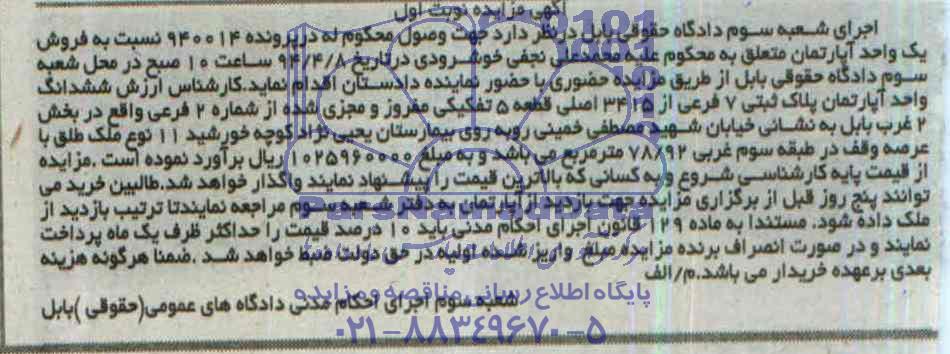 آگهی مزایده نوبت اول
اجرای شعبه سوم دادگاه حقوقی بابل درنظر دارد جهت وصول محکوم له درپرونده ۹۴۰۰۱۴ نسبت به فروش
یک واحد آپارتمان متعلق به محکوم علیه محمدعلی نجفی خوشرودی درتاریخ ۹۴/۴/۸ ساعت ۱۰ صبح در محل شعبه
سوم دادگاه حقوقی بابل از طریق مزایده حضوری با حضور نماینده دادستان اقدام نماید.کارشناس ارزش ششدانگ
واحد آپارتمان پلاک ثبتی ۷ فرعی از ۳۴۲۵ اصلی قطعه ۵ تفکیکی مفروز و مجزی شده از شماره ۲ فرعی واقع در بخش
۲ غرب بابل به نشانی خیابان شهید مصطفی خمینی روبه روی بیمارستان یحیی نژاد کوچه خورشید ۱۱ نوع ملک طلق با
عرصه وقف در طبقه سوم غربی ۷۸/۹۲ مترمربع می باشد و به مبلغ ۱۰۲۵۹۶۰۰۰۰ ریال برآورد نموده است .مزایده
از قیمت پایه کارشناسی شروع و به کسانی که بالاترین قیمت را پیشنهاد نمایند واگذار خواهد شد.طالبین خرید می
توانند پنج روز قبل از برگزاری مزایده جهت بازدید از آپارتمان به دفتر شعبه سوم مراجعه نمایندتا ترتیب بازدید از
ملک داده شود. مستندا به ماده ۱۲۹ قانون اجرای احکام مدنی باید ۱۰ درصد قیمت را حداکثر ظرف یک ماه پرداخت
نمایند و در صورت انصراف برنده مزایده مبلغ واریز شده اولیه در حق دولت ضبط خواهد شد .ضمنا هرگونه هزینه
بعدی برعهده خریدار می باشد.م/الف
شعبه سوم اجرای احکام مدنی دادگاه های عمومی(حقوقی )بابل
ParsNamadData
پایگاه اطلاع رسانی مناقصه و مزایده
۰۲۱-۸۸۳۴۹۶۷۰-۵